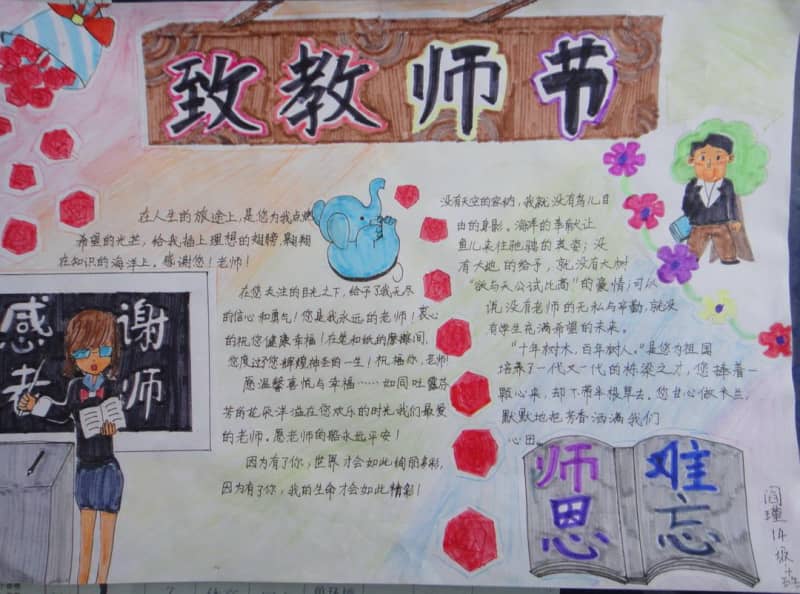 致教师节
在人生的旅途上,是您为我点燃
希望的光芒,给我插上理想的翅膀,翱翔
在知识的海洋上。感谢您!老师!
在您关注的目光之下,给予了我无尽
的信心和勇气!您是我永远的老师!衷心
的祝您健康幸福!在笔和纸的摩擦间,
您度过了您辉煌神圣的一生!祝福你,老师!
愿温馨喜悦与幸福……如同吐露芬
芳的花朵洋溢在您欢乐的时光我们最爱
的老师。愿老师的路永远平安!
因为有了你,世界才会如此绚丽多彩,
因为有了你,我的生命才会如此精彩!
没有天空的容纳,我就没有鸟儿自
由的身影。海洋的奉献让
鱼儿来往驰骋的英姿;没
有大地的给予,就没有大树
“欲与天公试比高”的豪情;可以
说没有老师的无私与辛勤,就没
有学生充满希望的未来。
“十年树木,百年树人。”是您为祖国
培养了一代又一代的栋梁之才,您捧着一
颗心来,却不带半根草去。您甘心做
默默地把芳香洒满我们
心田。
感谢
老师
师恩
难忘
瑾14级